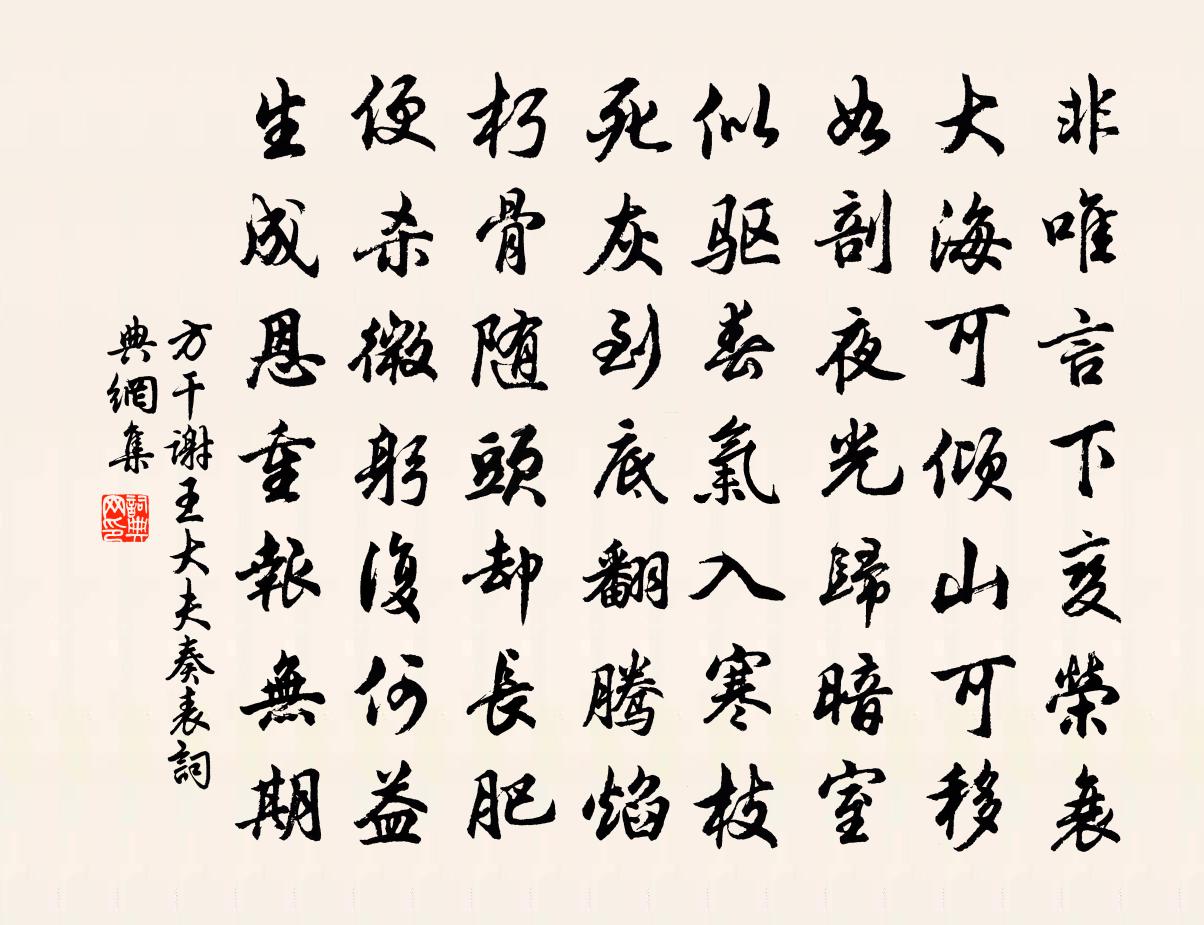 非唯言下变榮衰
大海可倾山可移
如剖夜光歸暗室
似驱春氣入寒枝
死灰到底翻腾焰
朽骨随頭却長肥
便杀微躬復何益
生成恩重報無期
方干谢王大夫奏表詞
典網集
詞典网印